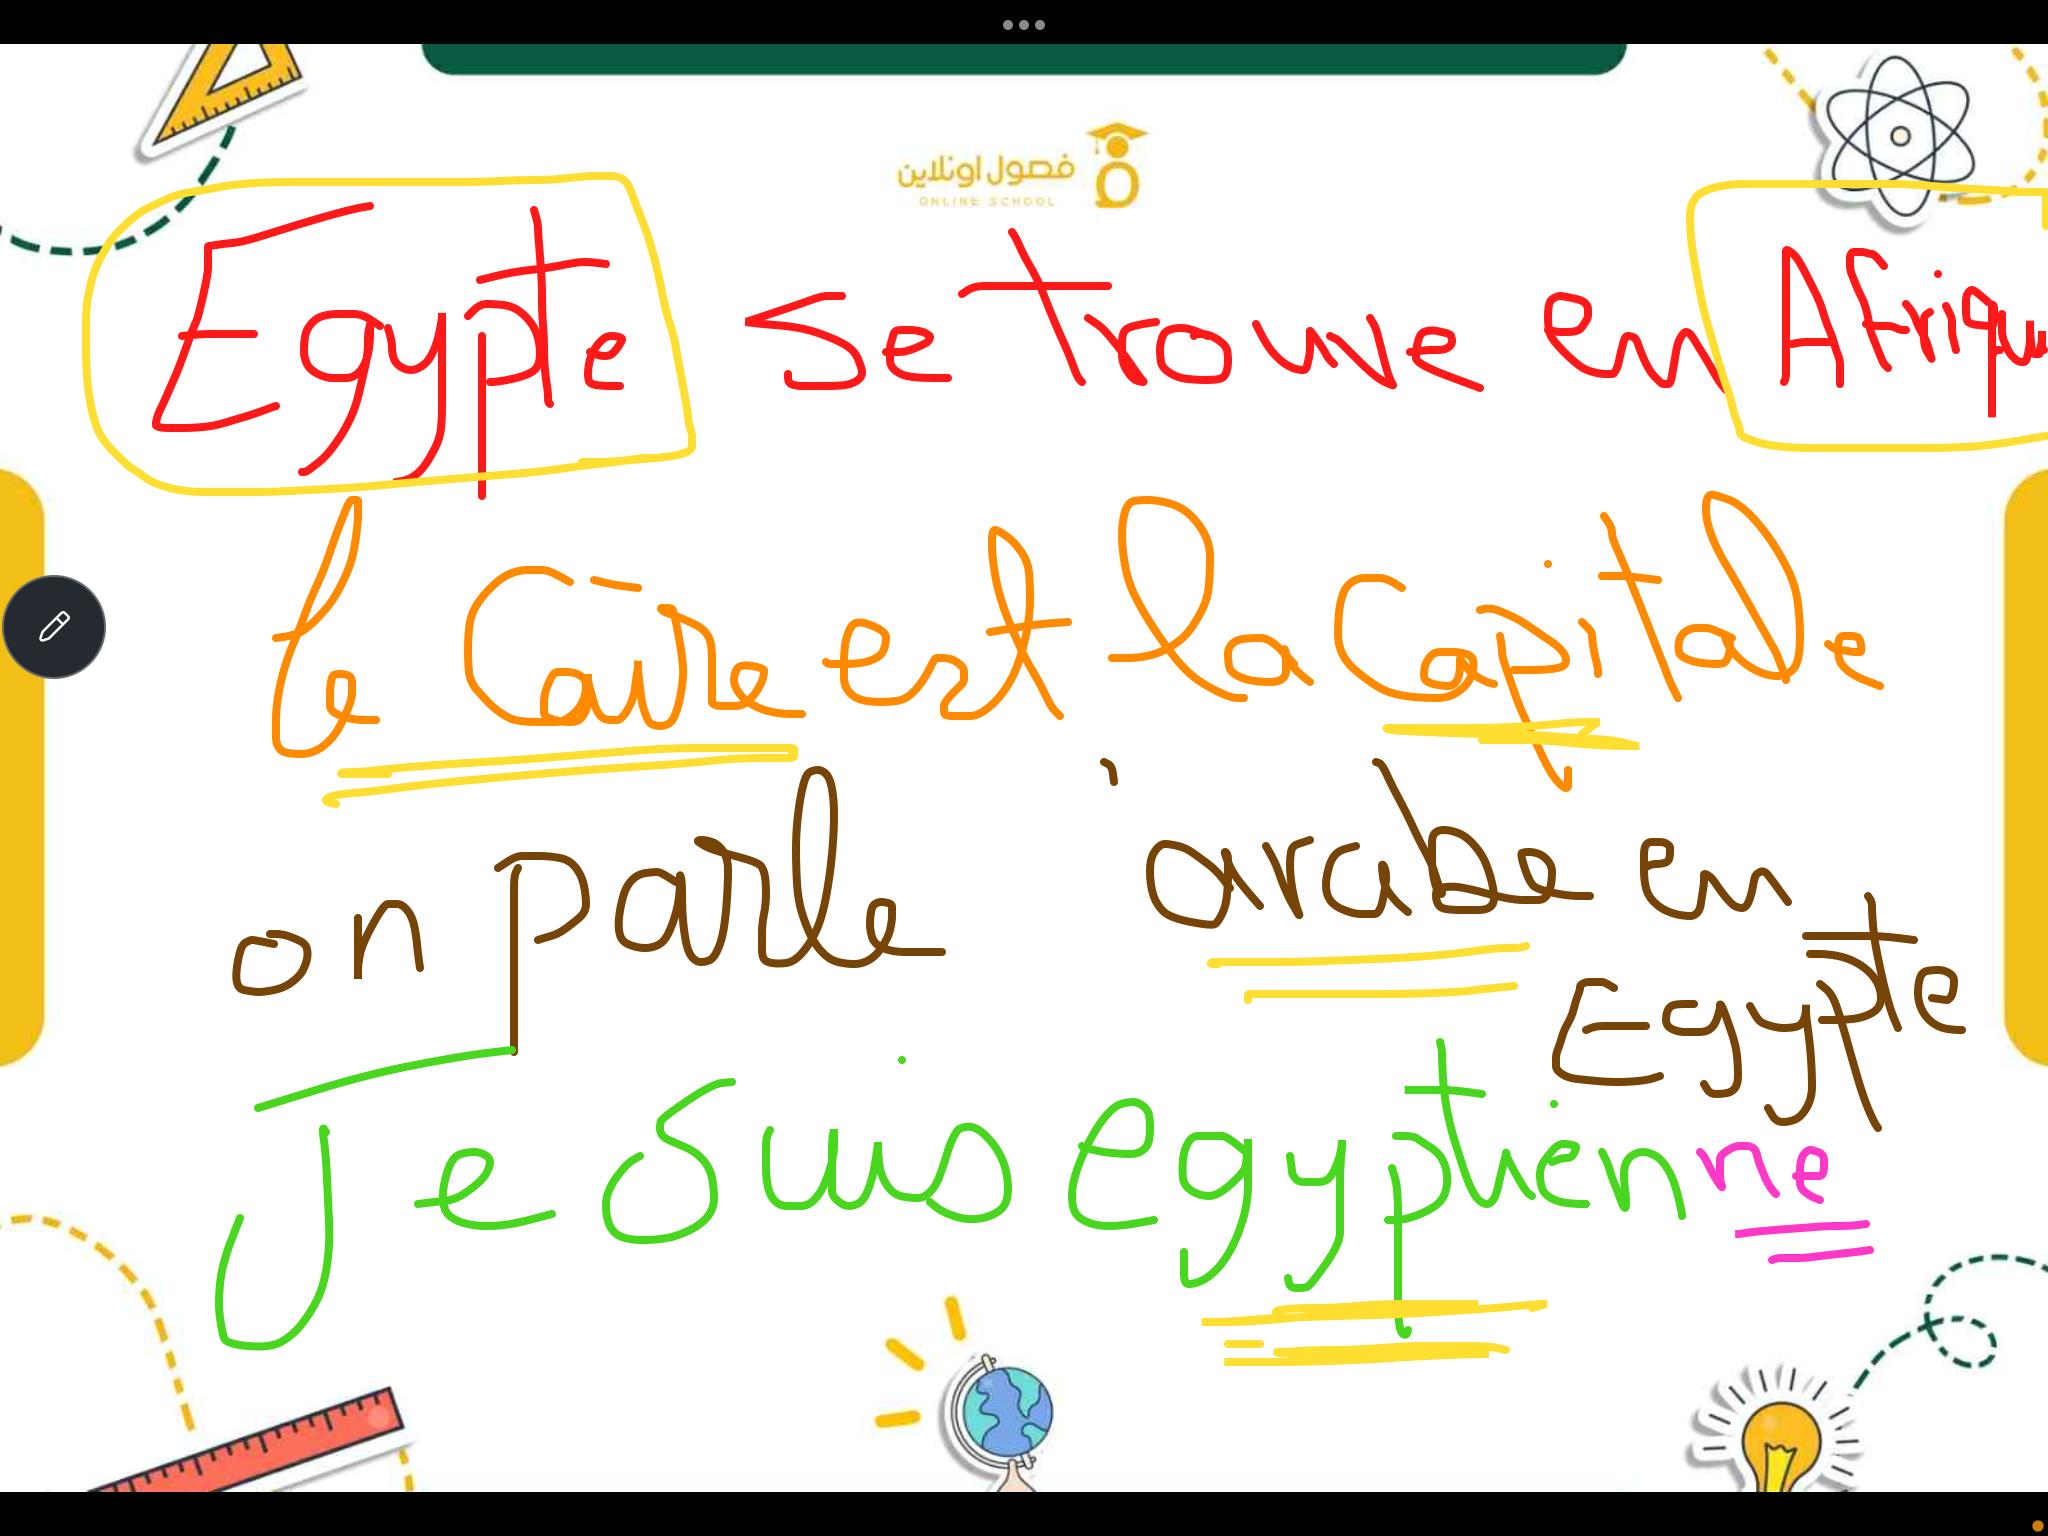 فصول اونلاين
ONLINE SCHOOL
Egypte se trouve en Afriqu
le Caire est la Capitale
on parle ' arabe en
Egypte
Je suis egyptienne